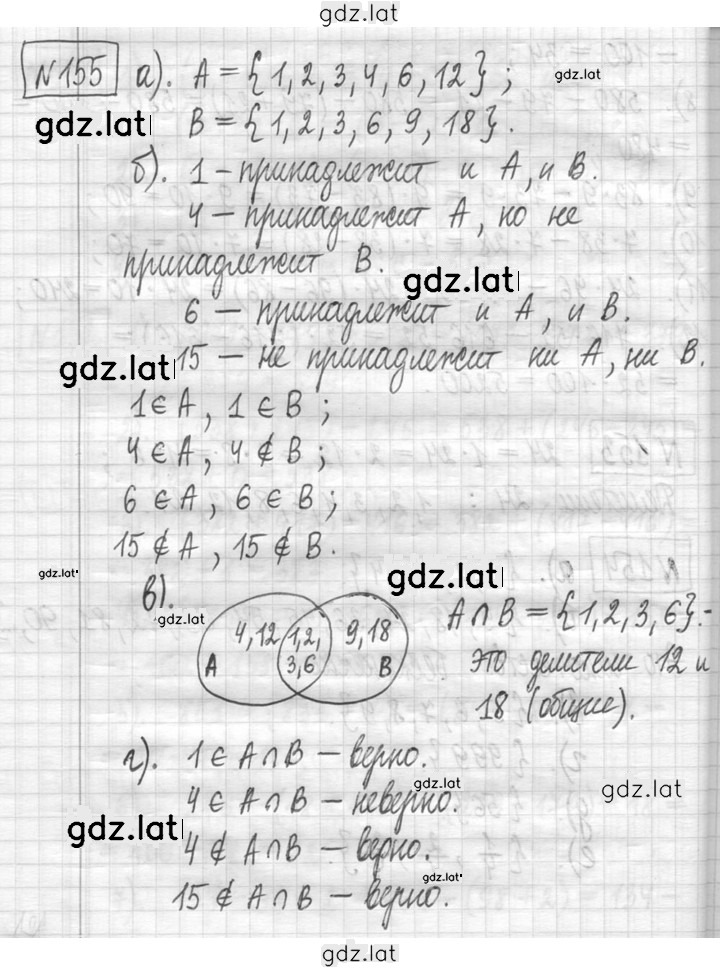 gdz.lat
№155 а). A = {1, 2, 3, 4, 6, 12};
gdz.lat
gdz.lat
B = {1, 2, 3, 6, 9, 18}.
б). 1 – принадлежит и A, и B.
4 – принадлежит A, но не
принадлежит B.
gdz.lat
6 – принадлежит и A, и B.
gdz.lat
15 – не принадлежит ни A, ни B.
1 ∈ A, 1 ∈ B;
4 ∈ A, 4 ∉ B;
6 ∈ A, 6 ∈ B;
15 ∉ A, 15 ∉ B.
gdz.lat
gdz.lat
в).
gdz.lat
4, 12 1, 2, 9, 18
A 3, 6 B
A ∩ B = {1, 2, 3, 6}. -
это делители 12 и
18 (общие).
г). 1 ∈ A ∩ B – верно.
gdz.lat
4 ∈ A ∩ B – неверно.
gdz.lat
gdz.lat
4 ∉ A ∩ B – верно.
gdz.lat
15 ∉ A ∩ B – верно.
gdz.lat